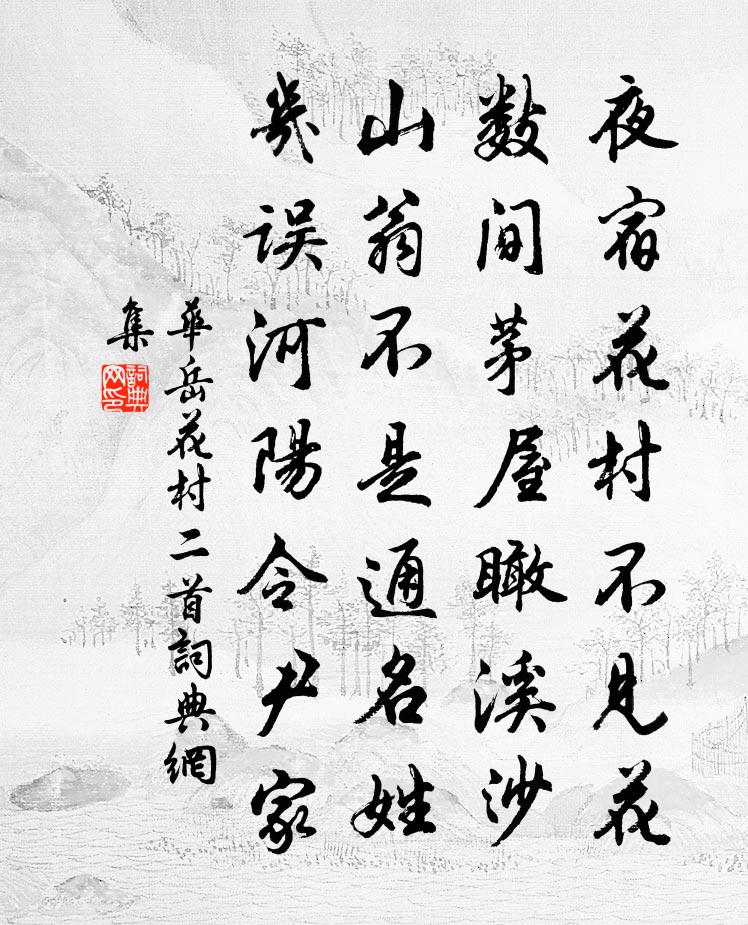 夜宿花村不见花
数间茅屋瞰溪沙
山翁不是通名姓
几误河阳令尹家
華岳花村二首詞典網
集
詞典
网印